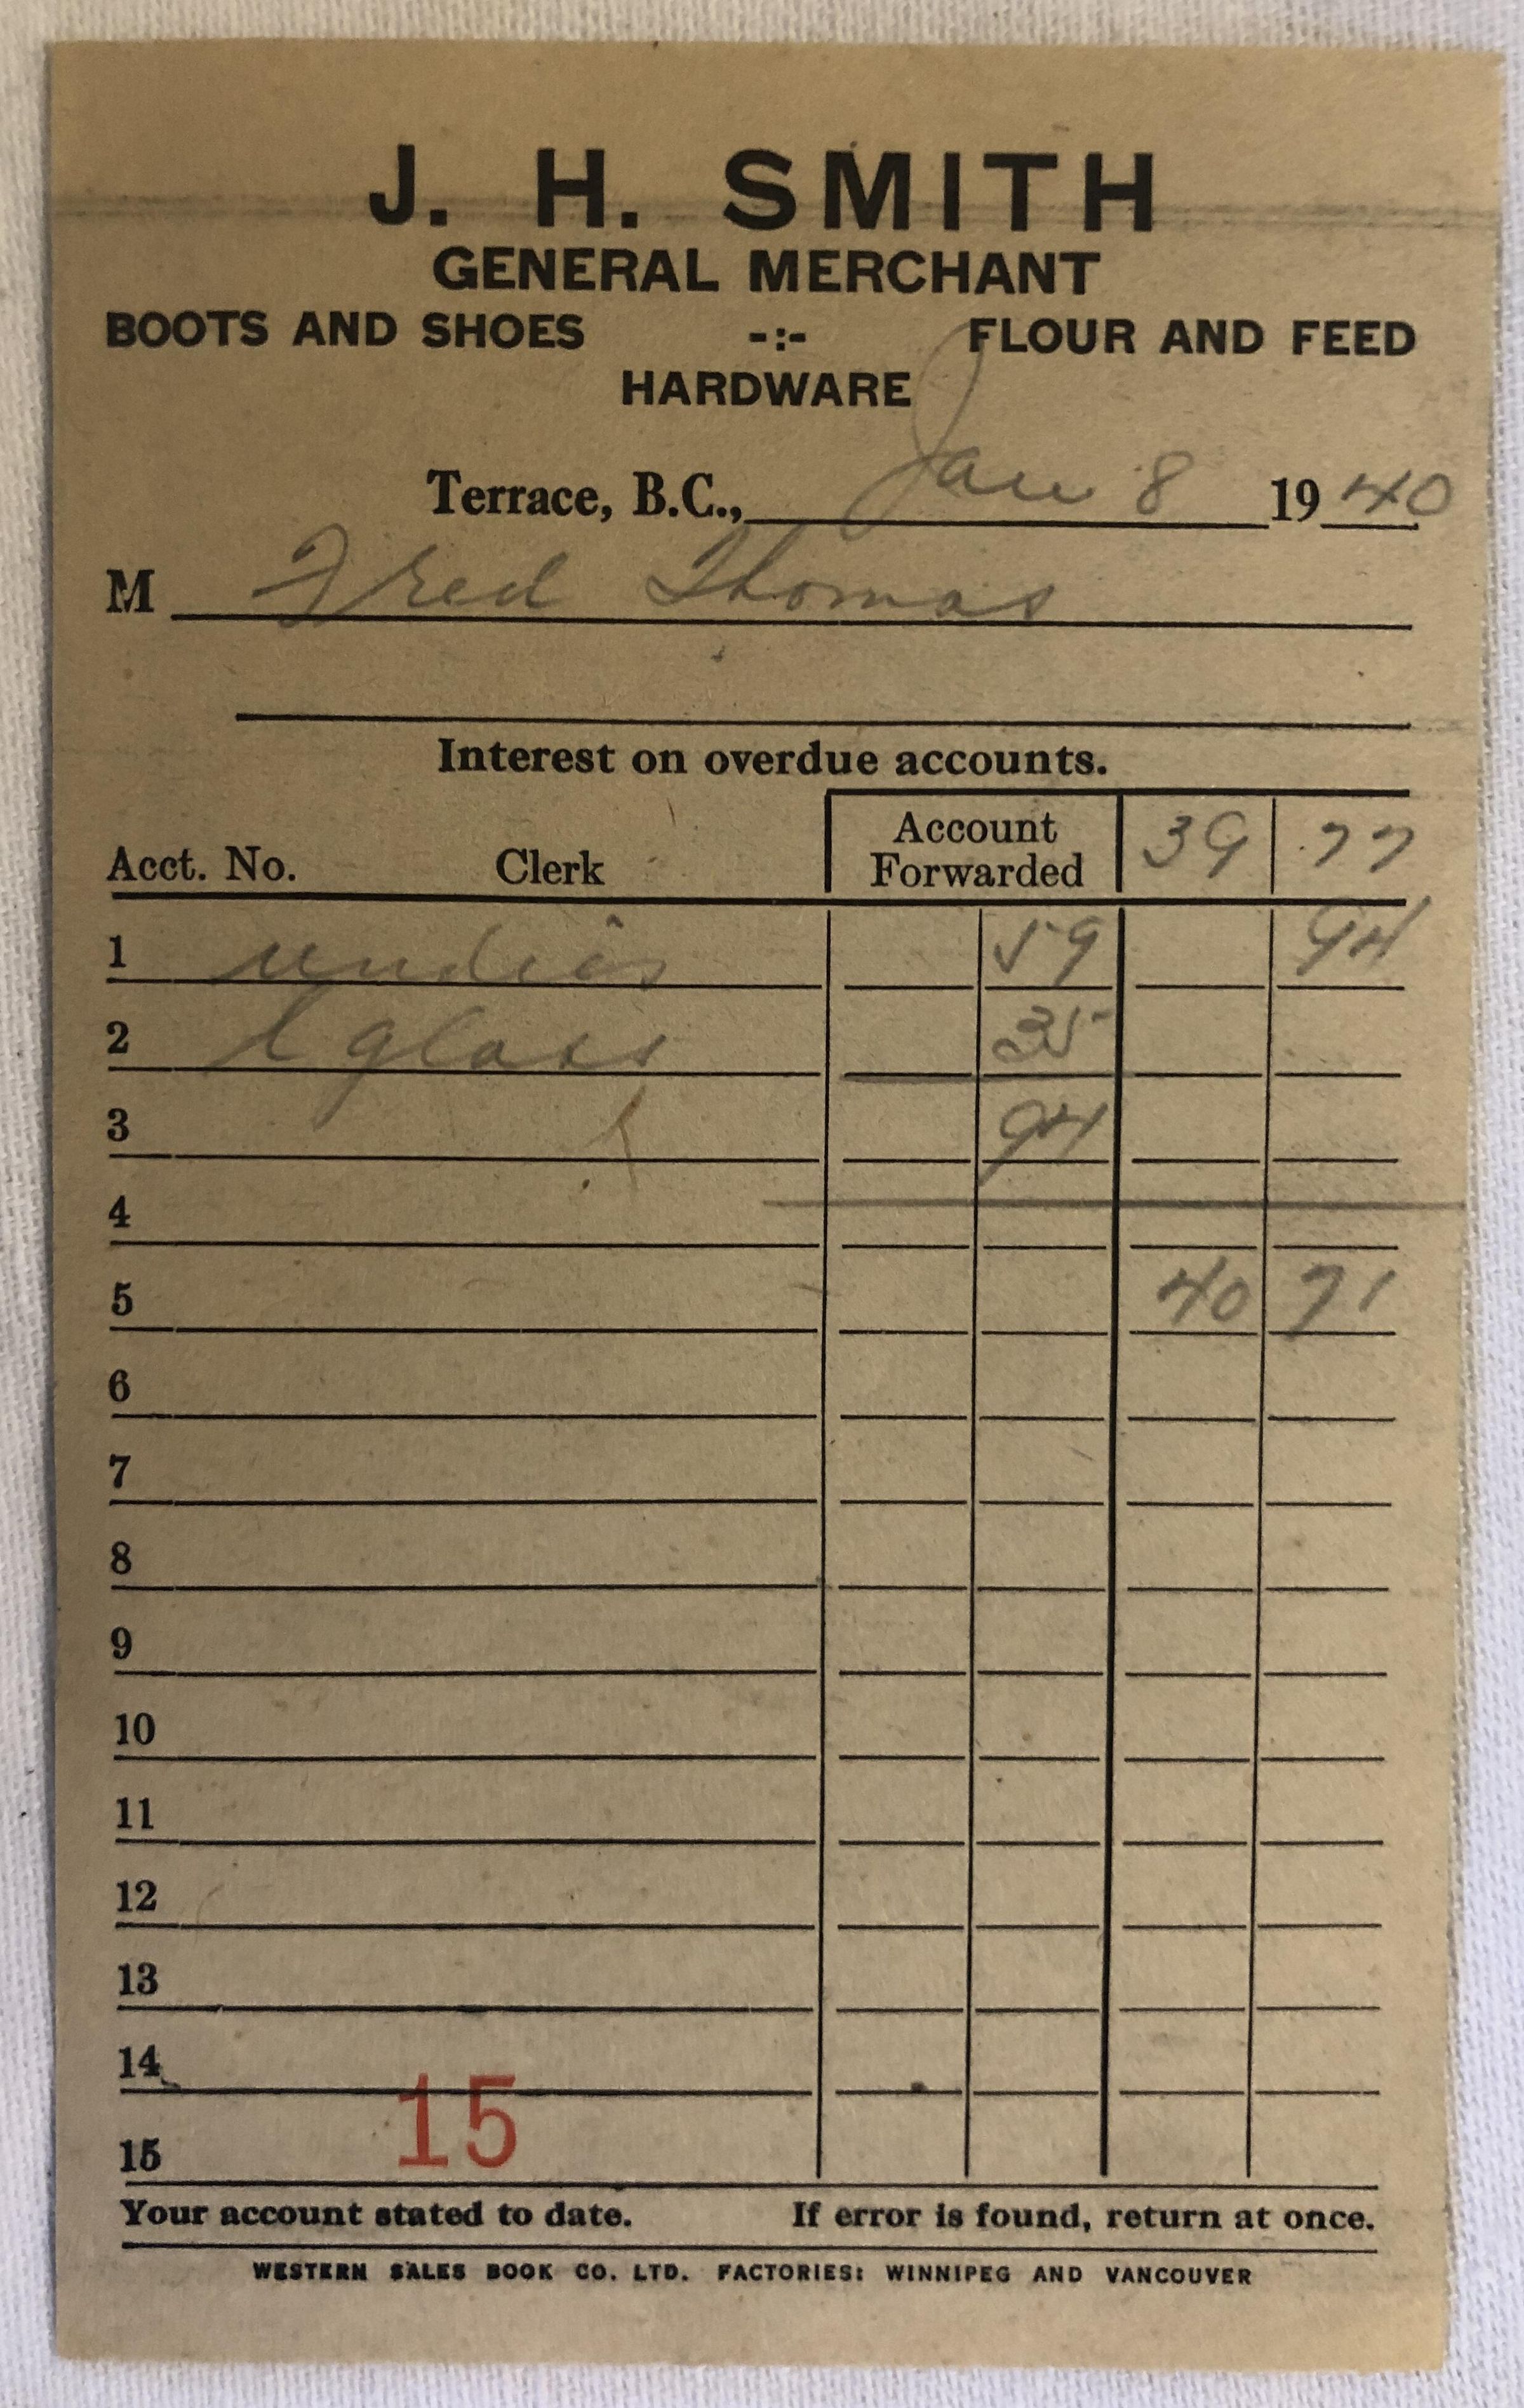 J. H. SMITH
GENERAL MERCHANT
BOOTS AND SHOES -:- FLOUR AND FEED
HARDWARE
Terrace, B.C., Jan 8 1940
M Fred Thomas
Interest on overdue accounts.
Acct. No. Clerk Account Forwarded 39 77
1 undies 59 94
2 l glass 35
3 94
4
5 40 71
6
7
8
9
10
11
12
13
14
15 15
Your account stated to date. If error is found, return at once.
WESTERN SALES BOOK CO. LTD. FACTORIES: WINNIPEG AND VANCOUVER